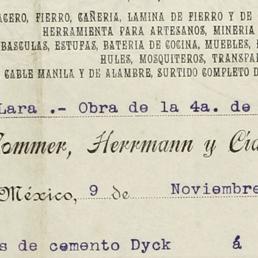 ACERO, FIERRO, CAÑERIA, LAMINA DE FIERRO Y DE
HERRAMIENTA PARA ARTESANOS, MINERIA
BASCULAS, ESTUFAS, BATERIA DE COCINA, MUEBLES,
HULES, MOSQUITEROS, TRANSPA
CABLE MANILA Y DE ALAMBRE, SURTIDO COMPLETO D
Lara .- Obra de la 4a. de
Sommer, Herrmann y Cía
México, 9 de Noviembre
s de cemento Dyck á